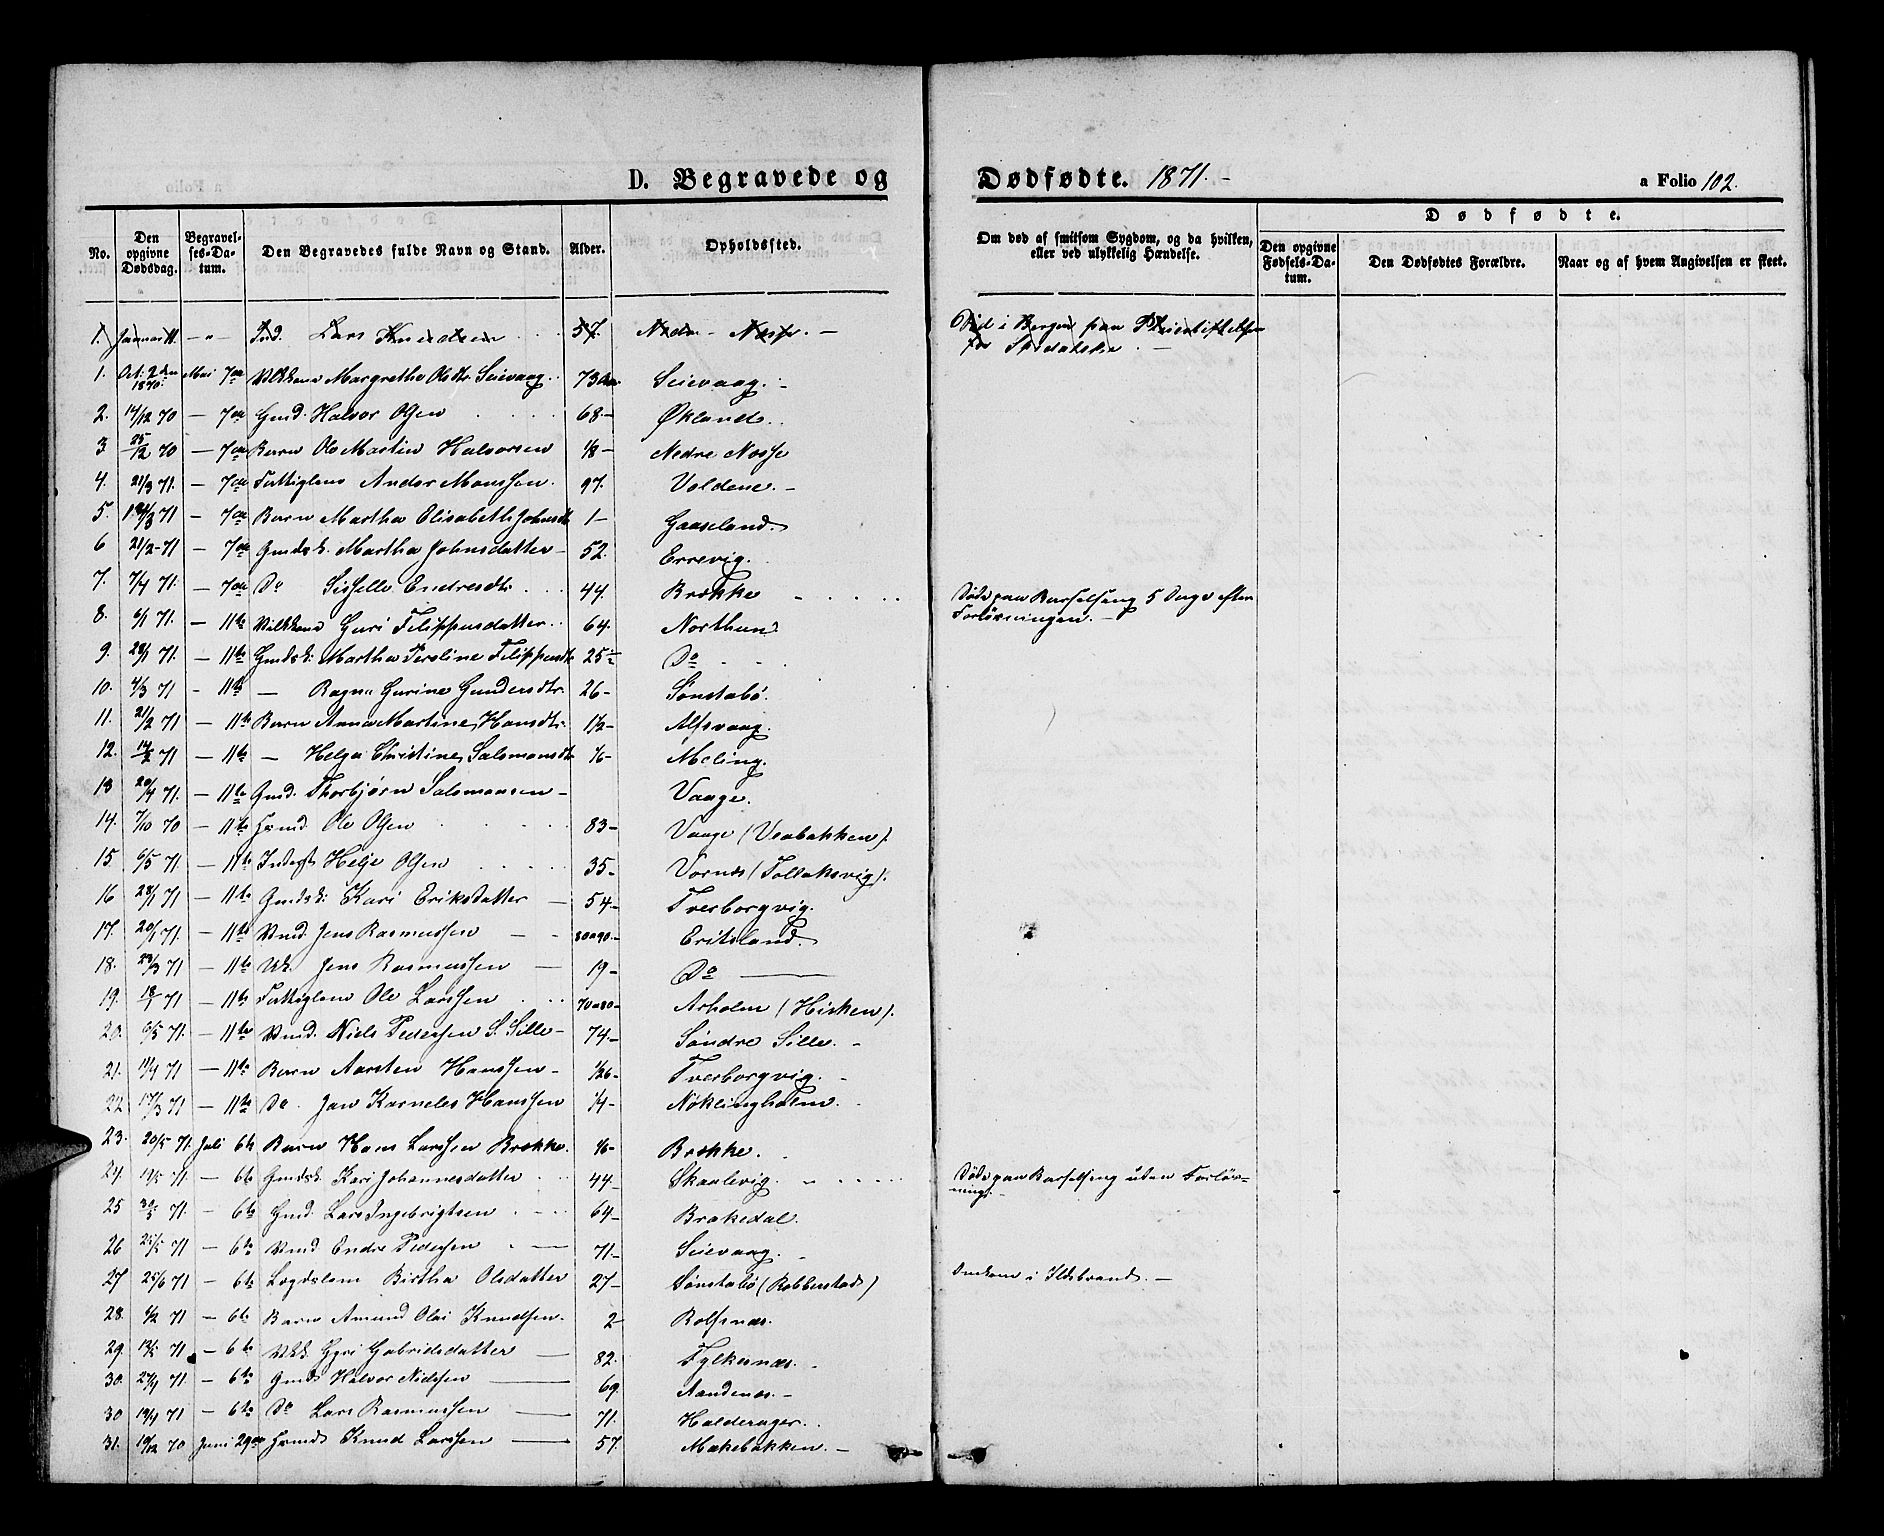 D. Begravede og Dødfødte. 1871. -
a Folio 102.
No. Den opgivne Dødsdag. Begravelses-Datum. Den Begravedes fulde Navn og Stand. Alder. Opholdsted. Om død af smitsom Sygdom, og da hvilken, eller ved ulykkelig Hændelse.
Dødfødte.
Den opgivne Fødsels-Datum. Den Dødfødtes Forældre. Naar og af hvem Angivelsen er skeet.
1. Januar - " - Ind. Lars Knudsen 57. Nedre Nosse - Død i Bergen paa Pleiestiftelsen
for Spedalske. -
1. Oct. 2den 1870. Mai 7de Margrethe Olsdtr. Seievaag. 73 Aar Seievaag. -
2. 14/12 70 - 7de Gmd. Halvor Olsen 68 - Økland.
3 25/12 70 - 7de Barn Ole Martin Halvorsen 1/8 - Nedre Nosse
4. 21/3 71. - 7de Fattiglem Andor Monssen. 97. Voldene. -
5. 71 - 7de Barn Martha Elisabeth Johnsdt 1 - Gaaseland.
6 21/2 - 71 - 7de Gmdsk. Martha Johnsdatter - 52. Errevig.
7. 7/4 71. - 7de Do Sisselle Endresdtr. 44. Brække - - - - Døde paa Barselseng 5 Dage efter
Forløsningen. -
8. 6/1 71. - 11te Guri Filippusdatter. 64. Northun
9. 28/1 71. - 11te Gmdsk. Martha Peroline Filippusdt 25 1/2 Do - -
10. 4/3 71 - 11te - Ragna Gurine Gundersdtr. 26 - Sønstabø.
11. 21/2 71 - 11te Barn Anne Martine Hansdtr. 1 1/2 - Alfsvaag.
12. 71 - 11te - Helga Christine Salomonsdt 1/6 - Meling.
13 20/4 71. - 11te Gmd. Thorbjørn Salomonsen - Vaage.
14. 7/10 70 - 11te Ole Olsen 83 - Vaage (Veabakken).
15 6/5 71 - 11te Inderst Helje Olsen 35 - Vornes (Tollaksvig).
16 28/1 71 - 11te Gmdsk. Kari Eriksdatter - 54. - Tverborgvig.
17. 20/1 71. - 11te Jens Rasmussen - - 80 a 90. - Eritsland.
18. 23/3 71 - 11te Uk. Jens Rasmussen - 19 - Do -
19. 18/1 71 - 11te Fattiglem Ole Larssen 70 a 80 - Arholm (Hisken).
20. 6/5 71. - 11te Niels Pedersen S. Sille - 74. - Søndre Sille. -
21. 11/4 71 - 11te Barn Aarsten Hanssen - 1/26 - Tverborgvig. -
22 17/3 71 - 11te Do. Jan Karneles Hanssen 1/4 - Nøklingholm. -
23. 20/5 71. Juli 6te Barn Hans Larssen Brække. 1/6 - Brække.
24. 19/5 71. - 6te Gmdsk. Kari Johannesdatter 44. - Skaalevig. - - - Døde paa Barselseng uden Forløs-
ning. -
25 30/5 71. - 6te Gmd. Lars Ingebrigtsen 64 - Brakedal.
26 25/5 71 - 6te Endre Pedersen - 71. - Seievaag.
27 25/6 71 - 6te Lægdslem Birtha Olsdatter 27 - Sønstabø (Robberstad) Omkom i Ildebrand. -
28. 71 - 6te Barn Amund Olai Knudssen. 2 Rolfsnæs.
29. 71 - 6te Gyri Gabrielsdatter - 82. Fylkesnæs. -
30. 27/4 71. - 6te Gmd. Halvor Nielsen - 69. Aandenes. -
30 19/4 71 - 6te Do Lars Rasmussen - 71. Halderager.
31. 10/12 70 Juni 29de Knud Larssen - 57. Møkebakken. -